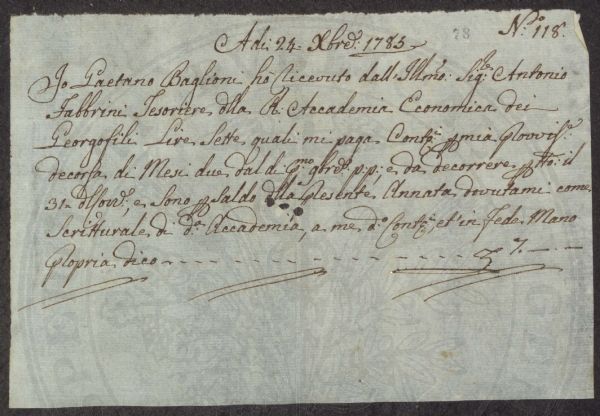 N.° 118.
78
Adi 24 Xbre. 1785
Io Gaetano Baglioni ho ricevuto dall'Illmo: Sigre. Antonio
Fabbrini Tesoriere della R. Accademia Economica dei
Georgofili Lire Sette quali mi paga Contti. p mia Provvisne.
decorsa di Mesi due dal dì pmo. 9bre. p.p: e da decorrere p tto. il
31 dello, e sono p saldo della presente Annata dovutami come
Scritturale di da. Accademia, a me do. Contti. et in fede Mano
Propria dico - - - - - - - - - - 7. - -